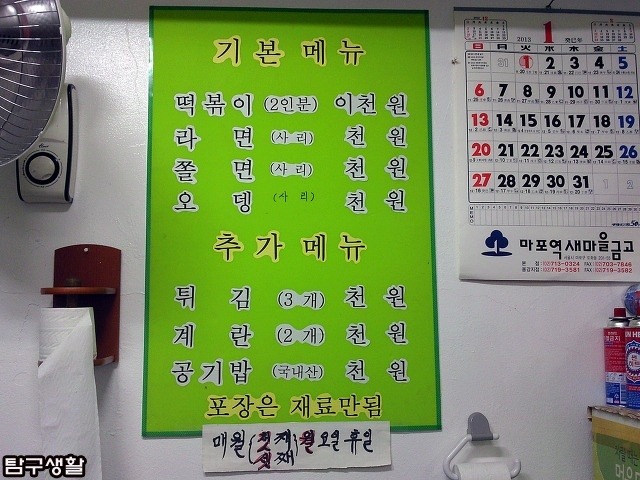 기본메뉴
떡볶이 (2인분) 이천원
라면 (사리) 천원
쫄면 (사리) 천원
오뎅 (사리) 천원
추가메뉴
튀김 (3개) 천원
계란 (2개) 천원
공기밥 (국내산) 천원
포장은 재료만됨
매월(첫째 셋째)월요일 휴일
2013 1 癸巳年
日 月 火 水 木 金 土
31 1 2 3 4 5
6 7 8 9 10 11 12
13 14 15 16 17 18 19
20 21 22 23 24 25 26
27 28 29 30 31 1 2
MEMO
마포역새마을금고
본점:(02)713-0324 FAX:(02)703-7846
용강지점:(02)719-3581 FAX:(02)719-3582
탐구생활